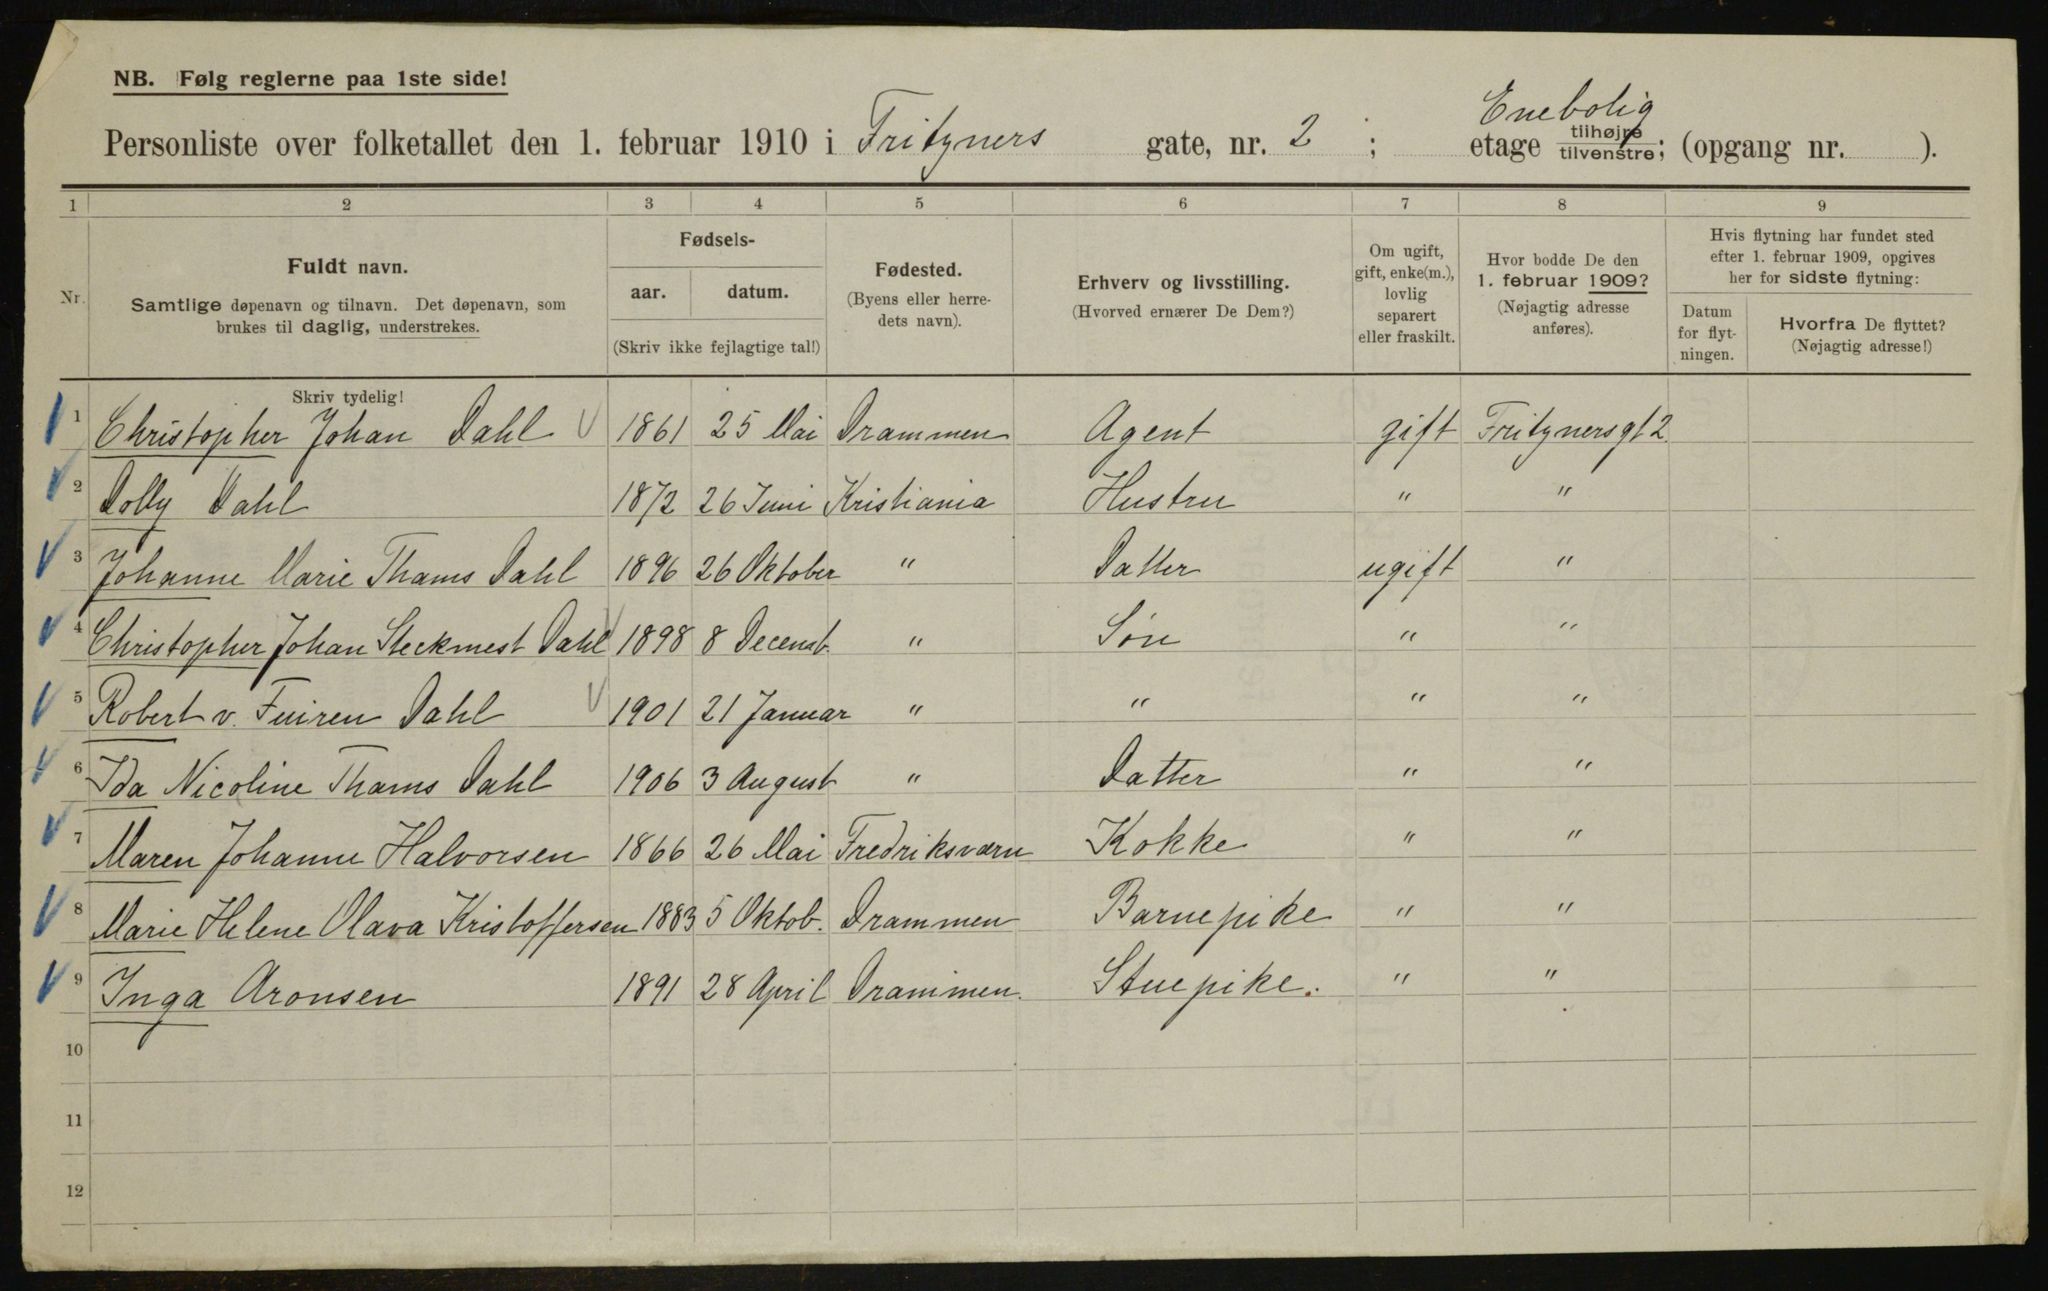 NB. Følg reglerne paa 1ste side!
Enebolig
Personliste over folketallet den 1. februar 1910 i Fritzners gate, nr. 2 ; etage tilhøjre tilvenstre; (opgang nr. ).
1 2 3 4 5 6 7 8 9
Nr.
Fuldt navn.
Samtlige døpenavn og tilnavn. Det døpenavn, som
brukes til daglig, understrekes.
Fødsels-
aar. datum.
(Skriv ikke fejlagtige tal!)
Fødested.
(Byens eller herre-
dets navn).
Erhverv og livsstilling.
(Hvorved ernærer De Dem?)
Om ugift,
gift, enke(m.),
lovlig
separert
eller fraskilt.
Hvor bodde De den
1. februar 1909?
(Nøjagtig adresse
anføres).
Hvis flytning har fundet sted
efter 1. februar 1909, opgives
her for sidste flytning:
Datum
for flyt-
ningen.
Hvorfra De flyttet?
(Nøjagtig adresse!)
Skriv tydelig!
1 Christopher Johan Dahl 1861 25 Mai Drammen Agent gift Fritznersgt 2
2 Dolly Dahl 1872 26 Juni Kristiania Hustru " "
3 Johanne Marie Thams Dahl 1896 26 Oktober " Datter ugift "
4 Christopher Johan Steckmest Dahl 1898 8 Decemb. " Søn " "
5 Robert v. Fuiren Dahl 1901 21 Januar " " " "
6 Ida Nicoline Thams Dahl 1906 3 August " Datter " "
7 Maren Johanne Halvorsen 1866 26 Mai Fredriksværn Kokke " "
8 Marie Helene Olava Kristoffersen 1883 5 Oktob. Drammen Barnepike " "
9 Inga Aronsen 1891 28 April Drammen. Stuepike. " "
10
11
12